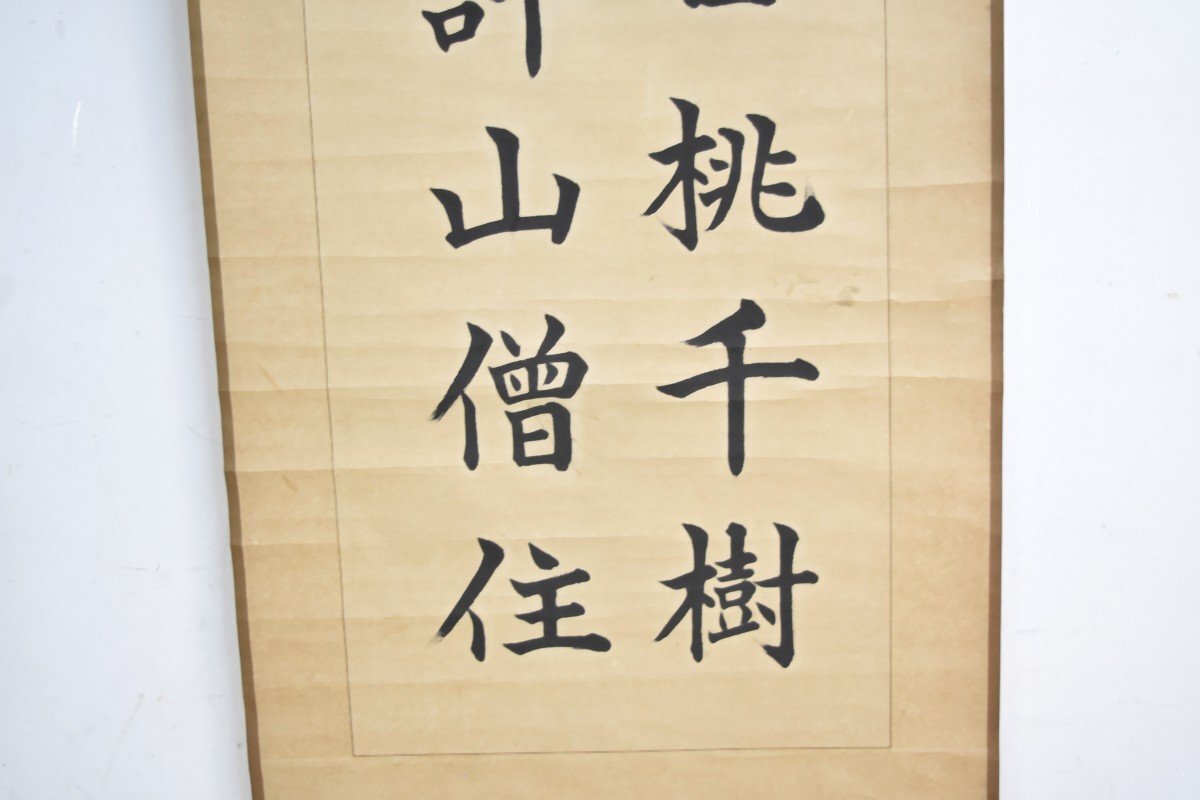 桃千樹
山僧住